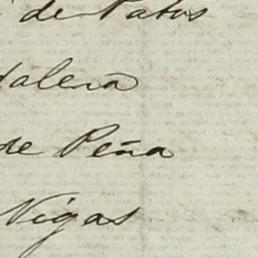 de Patos
dalena
de Peña
Vigas